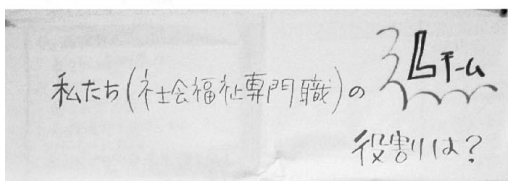 私たち(社会福祉専門職)の
Lチーム
役割は?